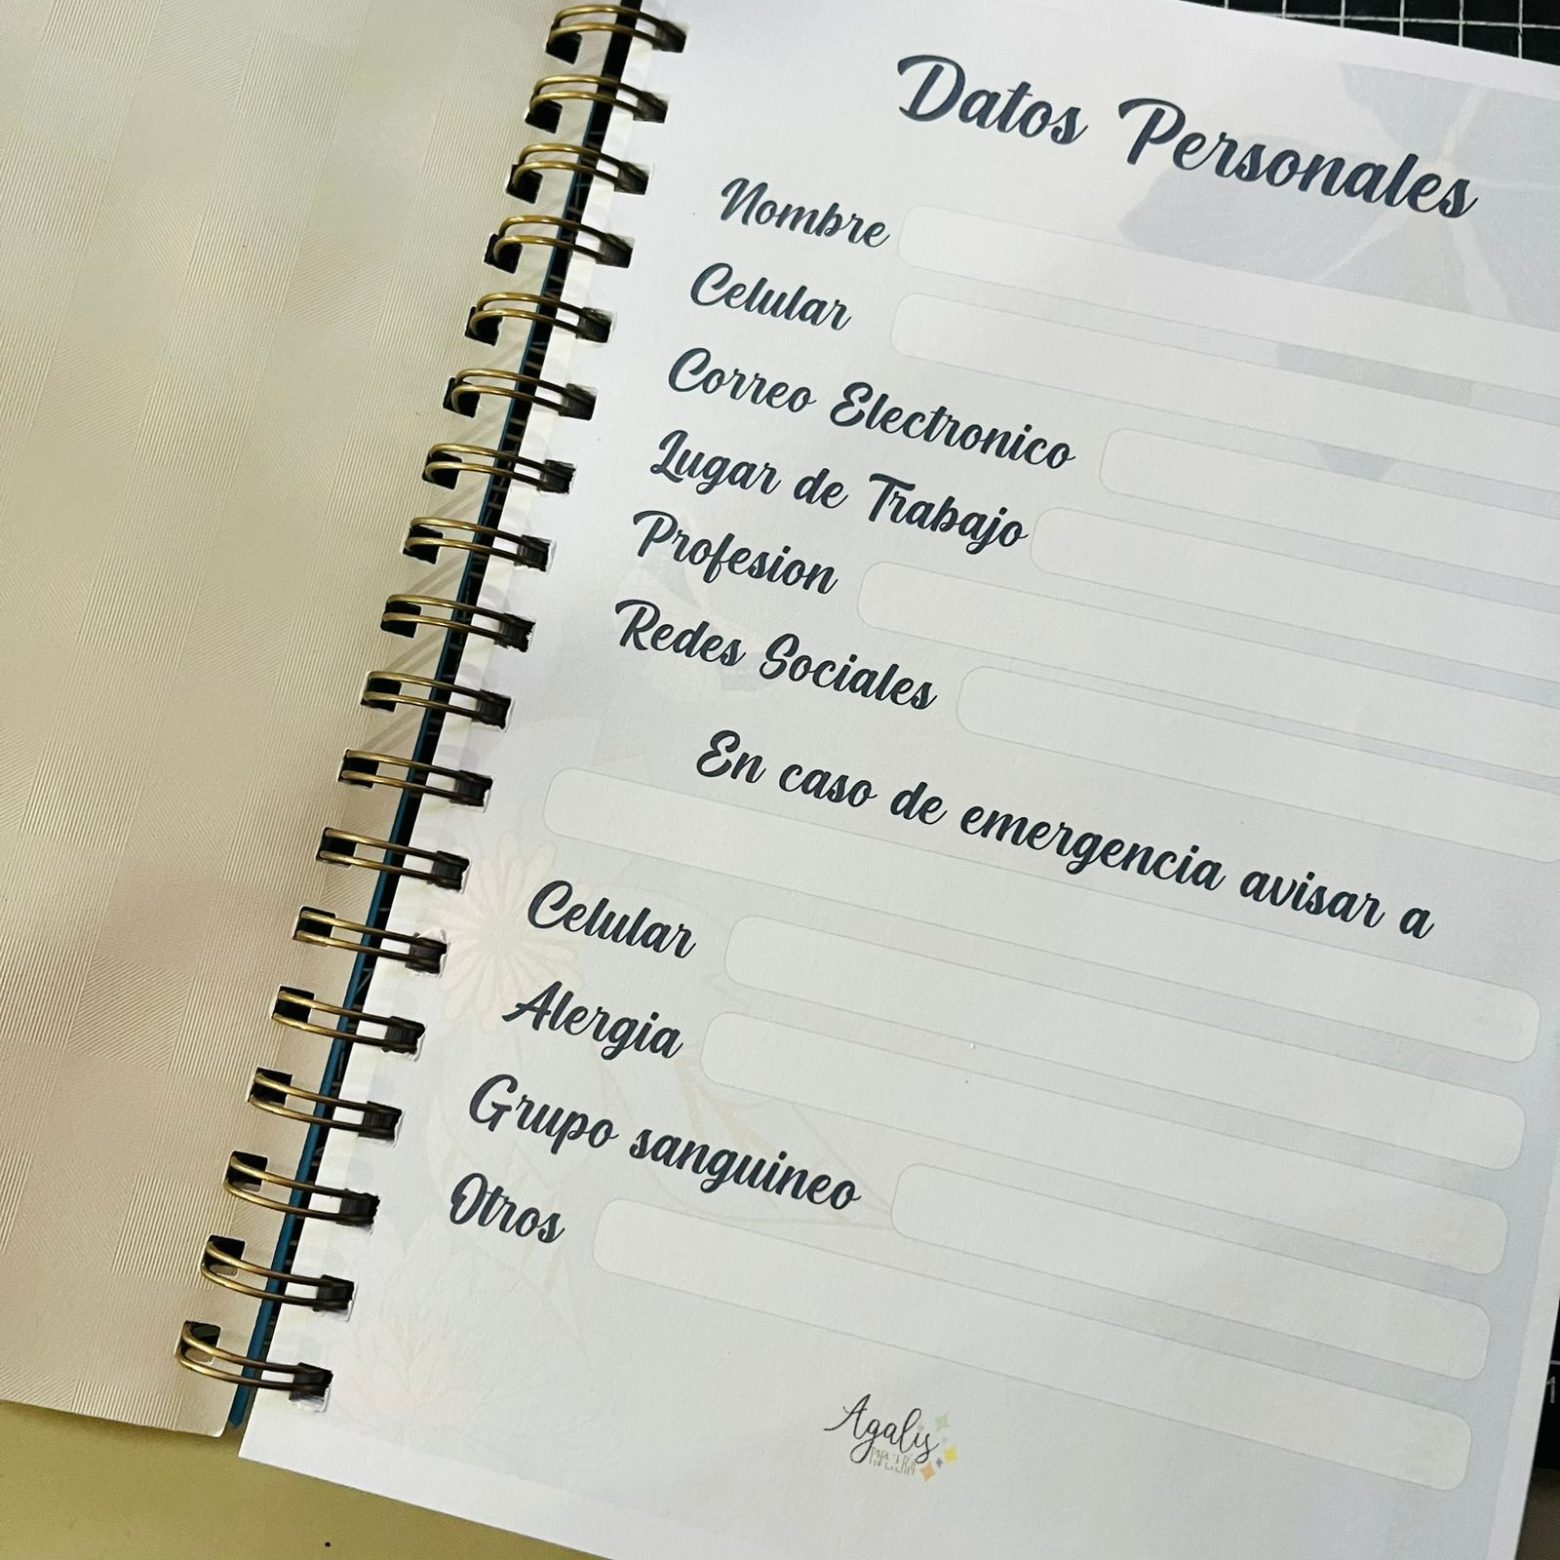 Datos Personales
Nombre
Celular
Correo Electronico
Lugar de Trabajo
Profesion
Redes Sociales
En caso de emergencia avisar a
Celular
Alergia
Grupo sanguineo
Otros
Agalis